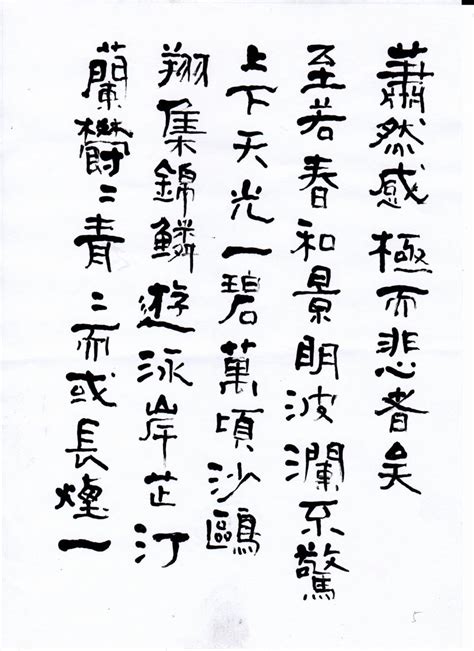 蕭然感極而悲者矣
至若春和景明波瀾不驚
上下天光一碧萬頃沙鷗
翔集錦鱗遊泳岸芷汀
蘭欝〻青〻而或長煙一
5